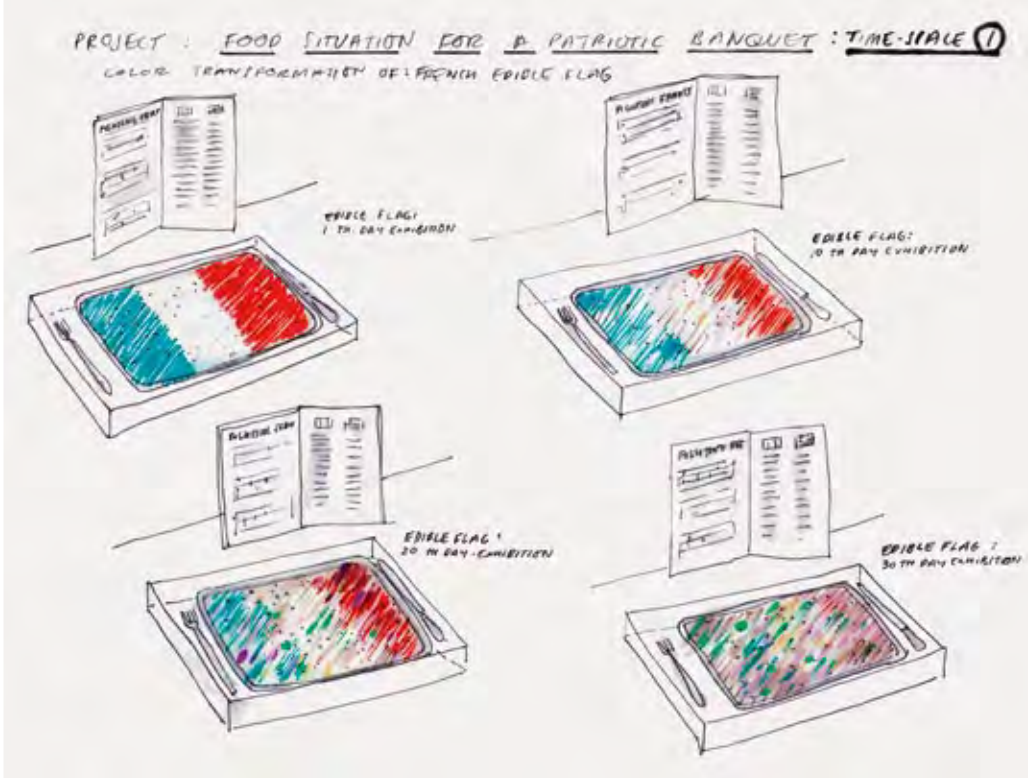 PROJECT : FOOD SITUATION FOR A PATRIOTIC BANQUET : TIME-SPALE 1
COLOR TRANSFORMATION OF: FRENCH EDIBLE FLAG
EDIBLE FLAG:
1 TH DAY EXHIBITION
EDIBLE FLAG:
10 TH DAY EXHIBITION
EDIBLE FLAG :
20 TH DAY - EXHIBITION
EDIBLE FLAG :
30 TH DAY EXHIBITION